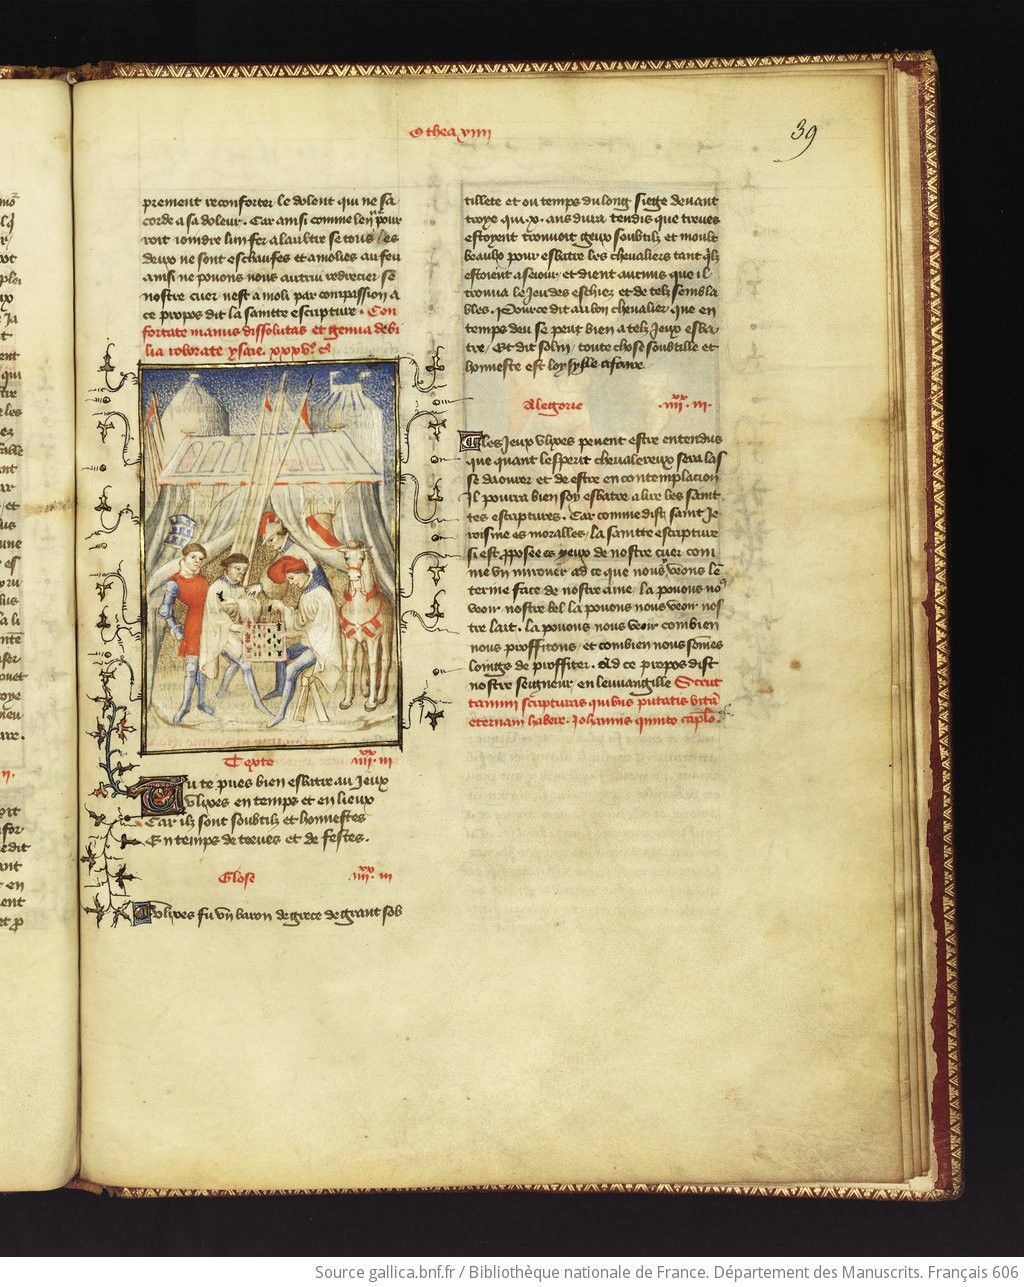 Othea xviii
39
prement reconforter le dolent qui ne sa
corde a sa doleur. Car ainsi comme len pour
roit ioindre lun fer a laultre se tous les
deux ne sont eschaufes et amolies au feu
ainsi ne pouons nous autrui redrecier se
nostre cuer nest amoli par compassion a
ce propos dit la saintte escripture. Con
fortate manus dissolutas et genua debi
lia roborate ysaie. xxxv.º cº
Texte iiii.xx iii
Tu te pues bien esbatre au jeux
Ulixes en temps et en lieux
Car ilz sont soubtilz et honnestes
En temps de treues et de festes.
Glose iiii.xx iii
Ulixes fu un baron de grece de grant sob
tillete et ou temps du long siege deuant
troye qui .x. ans dura tendis que treues
estoyent trouuoit geux soubtilz et moult
beaulx pour esbatre les chevaliers tant qlz
estoient a sejour et dient aucuns que il
trouua le jeu des eschiez et de telz sembla
bles. Pource dit au bon chevalier que en
temps deu se peut bien a telz jeux esba
tre Et dit solin toute chose soubtille et
honneste est loysible a faire
Alegorie .iiii.xx iii.
Les jeux Ulixes peuent estre entendus
que quant lesperit chevalereux sera las
se daourer et de estre en contemplacion
Il pourra bien soy esbatre a lire les saint
tes escriptures. Car comme dist saint Je
roisme es moralles la saintte escripture
si est pposee es yeux de nostre cuer com
me un mirouer ad ce que nous veons lē
terme face de nostre ame. la pouons noº
veoir nostre bel la pouons nous veoir nos
tre lait. la pouons nous veoir combien
nous prossittons et combien nous somes
loings de prossiter. Ad ce propos dist
nostre seigneur en leuuangille Scrut
tamini scripturas quibus putatis vitā
eternam habere. Johannis quinto caplo.
Source gallica.bnf.fr / Bibliothèque nationale de France. Département des Manuscrits. Français 606